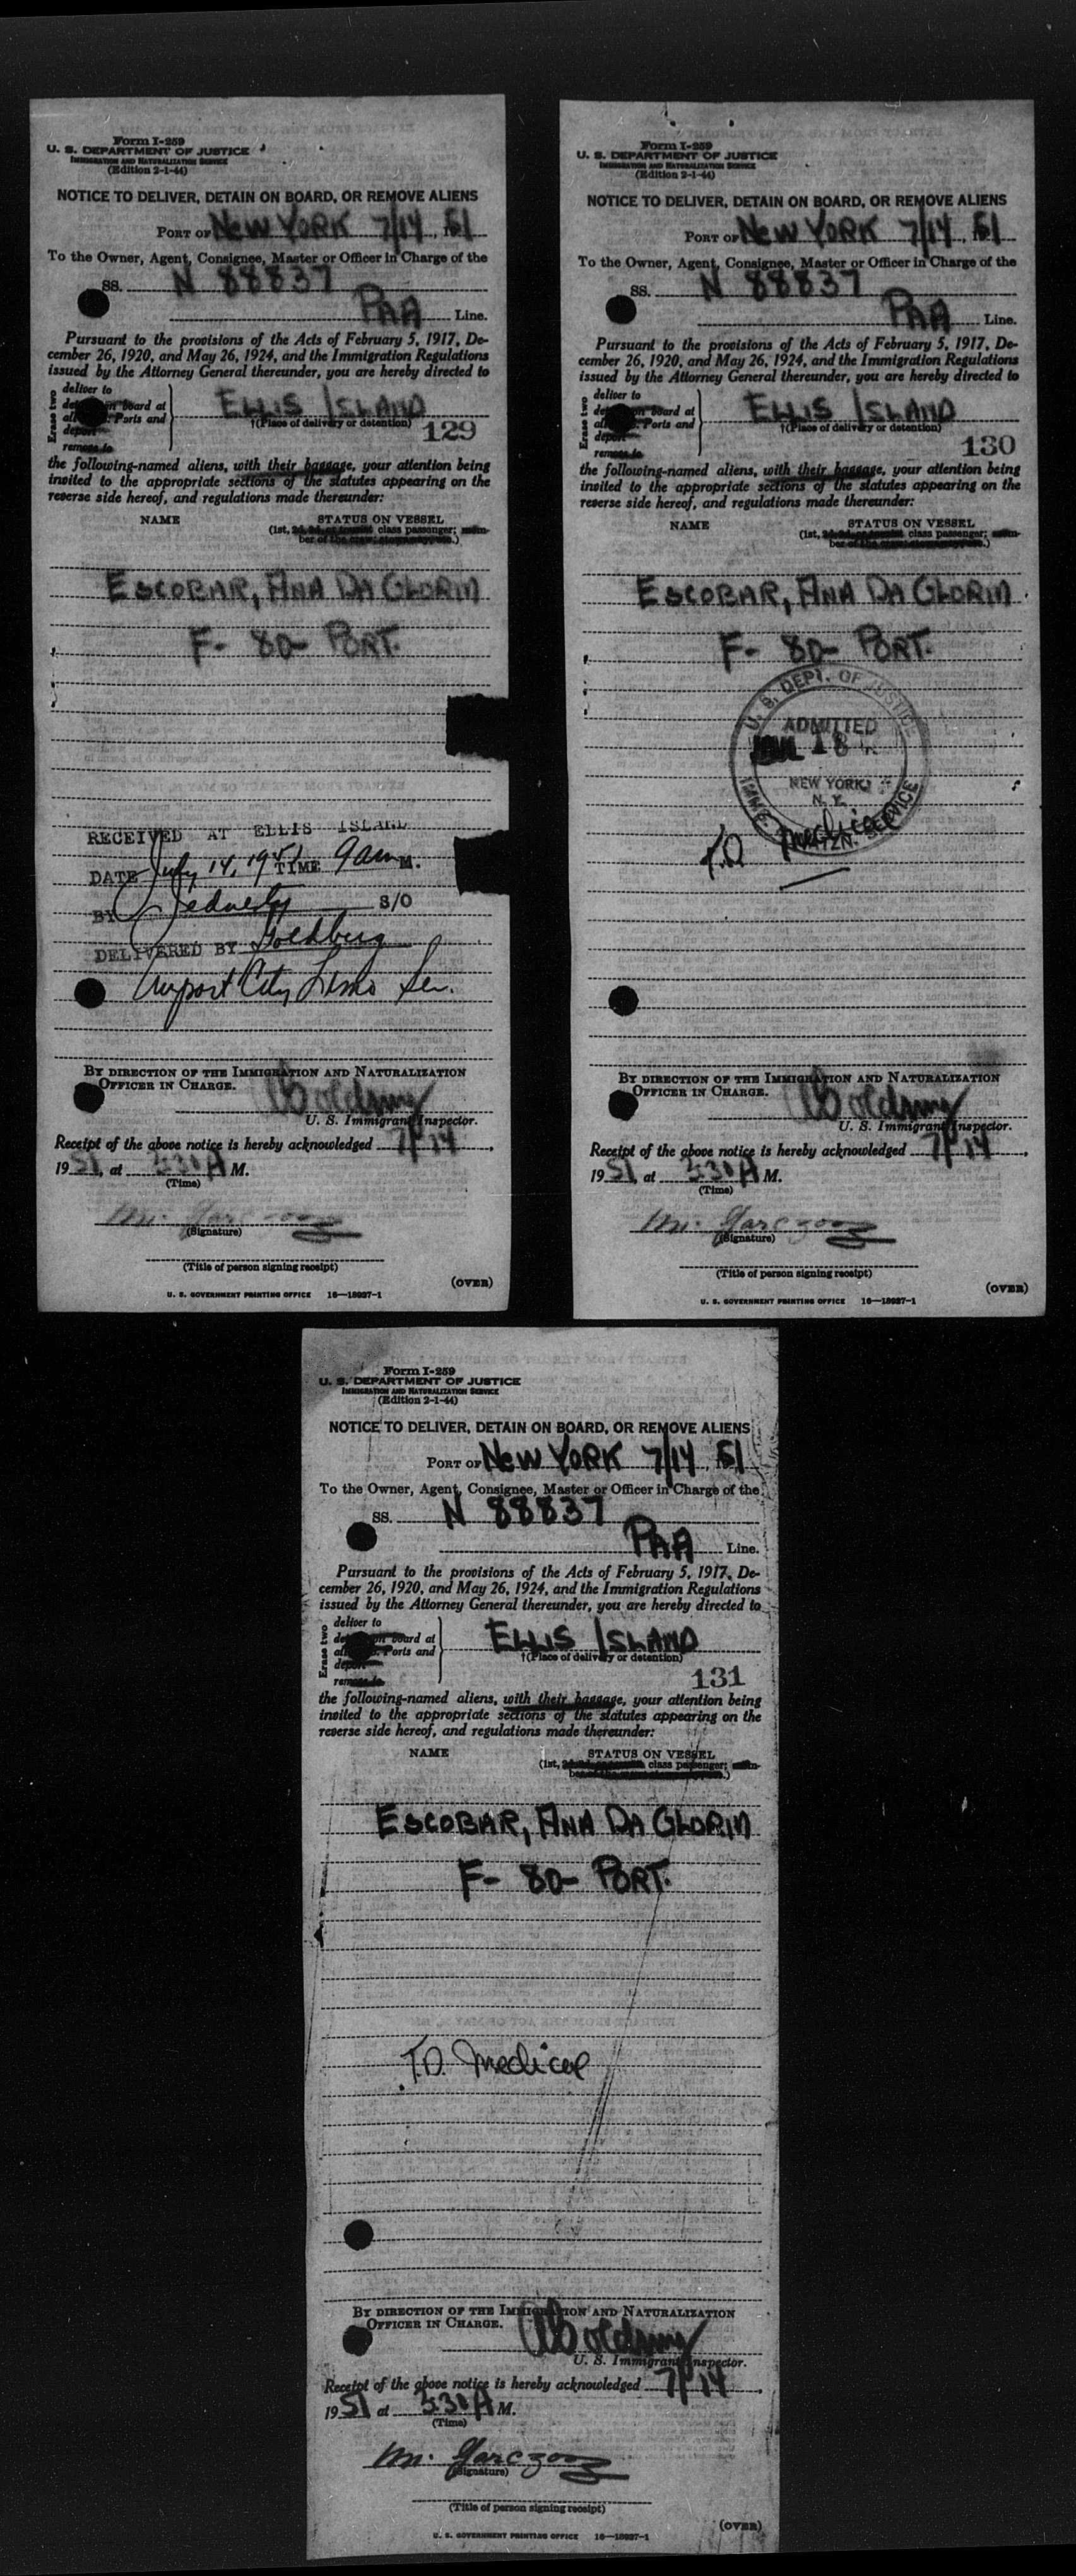 Form I-259
U. S. DEPARTMENT OF JUSTICE
IMMIGRATION AND NATURALIZATION SERVICE
(Edition 2-1-44)
NOTICE TO DELIVER, DETAIN ON BOARD, OR REMOVE ALIENS
PORT OF NEW YORK 7/14, 1951
To the Owner, Agent, Consignee, Master or Officer in Charge of the
SS. N 88837
PAA Line.
Pursuant to the provisions of the Acts of February 5, 1917, De-
cember 26, 1920, and May 26, 1924, and the Immigration Regulations
issued by the Attorney General thereunder, you are hereby directed to
Erase two
deliver to
board at
Ports and
deport
remove to
ELLIS ISLAND
†(Place of delivery or detention)
129
the following-named aliens, with their baggage, your attention being
invited to the appropriate sections of the statutes appearing on the
reverse side hereof, and regulations made thereunder:
NAME STATUS ON VESSEL
(1st, class passenger; mem-
ber of the crew; .)
ESCOBAR, ANA DA GLORIA
F- 80- PORT.
RECEIVED AT ELLIS ISLAND
DATE July 14, 1951 TIME 9am M.
BY S/O
DELIVERED BY Goldberg
Airport City Limo Ser.
BY DIRECTION OF THE IMMIGRATION AND NATURALIZATION
OFFICER IN CHARGE.
U. S. Immigrant Inspector.
Receipt of the above notice is hereby acknowledged 7/14,
1951, at 3:30 A M.
(Time)
(Signature)
(Title of person signing receipt)
(OVER)
U. S. GOVERNMENT PRINTING OFFICE 16—18937-1
Form I-259
U. S. DEPARTMENT OF JUSTICE
IMMIGRATION AND NATURALIZATION SERVICE
(Edition 2-1-44)
NOTICE TO DELIVER, DETAIN ON BOARD, OR REMOVE ALIENS
PORT OF NEW YORK 7/14, 1951
To the Owner, Agent, Consignee, Master or Officer in Charge of the
SS. N 88837
PAA Line.
Pursuant to the provisions of the Acts of February 5, 1917, De-
cember 26, 1920, and May 26, 1924, and the Immigration Regulations
issued by the Attorney General thereunder, you are hereby directed to
Erase two
deliver to
board at
Ports and
deport
remove to
ELLIS ISLAND
†(Place of delivery or detention)
130
the following-named aliens, with their baggage, your attention being
invited to the appropriate sections of the statutes appearing on the
reverse side hereof, and regulations made thereunder:
NAME STATUS ON VESSEL
(1st, class passenger; mem-
ber of the crew; .)
ESCOBAR, ANA DA GLORIA
F- 80- PORT.
U. S. DEPT. OF JUSTICE
ADMITTED
JUL 18
NEW YORK,
N. Y.
IMMG. NATZN. SERVICE
T.D. Medical
BY DIRECTION OF THE IMMIGRATION AND NATURALIZATION
OFFICER IN CHARGE.
U. S. Immigrant Inspector.
Receipt of the above notice is hereby acknowledged 7/14,
1951, at 3:30 A M.
(Time)
(Signature)
(Title of person signing receipt)
(OVER)
U. S. GOVERNMENT PRINTING OFFICE 16—18937-1
Form I-259
U. S. DEPARTMENT OF JUSTICE
IMMIGRATION AND NATURALIZATION SERVICE
(Edition 2-1-44)
NOTICE TO DELIVER, DETAIN ON BOARD, OR REMOVE ALIENS
PORT OF NEW YORK 7/14, 1951
To the Owner, Agent, Consignee, Master or Officer in Charge of the
SS. N 88837
PAA Line.
Pursuant to the provisions of the Acts of February 5, 1917, De-
cember 26, 1920, and May 26, 1924, and the Immigration Regulations
issued by the Attorney General thereunder, you are hereby directed to
Erase two
deliver to
board at
Ports and
deport
remove to
ELLIS ISLAND
†(Place of delivery or detention)
131
the following-named aliens, with their baggage, your attention being
invited to the appropriate sections of the statutes appearing on the
reverse side hereof, and regulations made thereunder:
NAME STATUS ON VESSEL
(1st, class passenger; mem-
ESCOBAR, ANA DA GLORIA
F- 80- PORT.
T.D. Medical
BY DIRECTION OF THE IMMIGRATION AND NATURALIZATION
OFFICER IN CHARGE.
U. S. Immigrant Inspector.
Receipt of the above notice is hereby acknowledged 7/14,
1951 at 3:30 A M.
(Time)
(Signature)
(Title of person signing receipt)
(OVER)
U. S. GOVERNMENT PRINTING OFFICE 16—18937-1